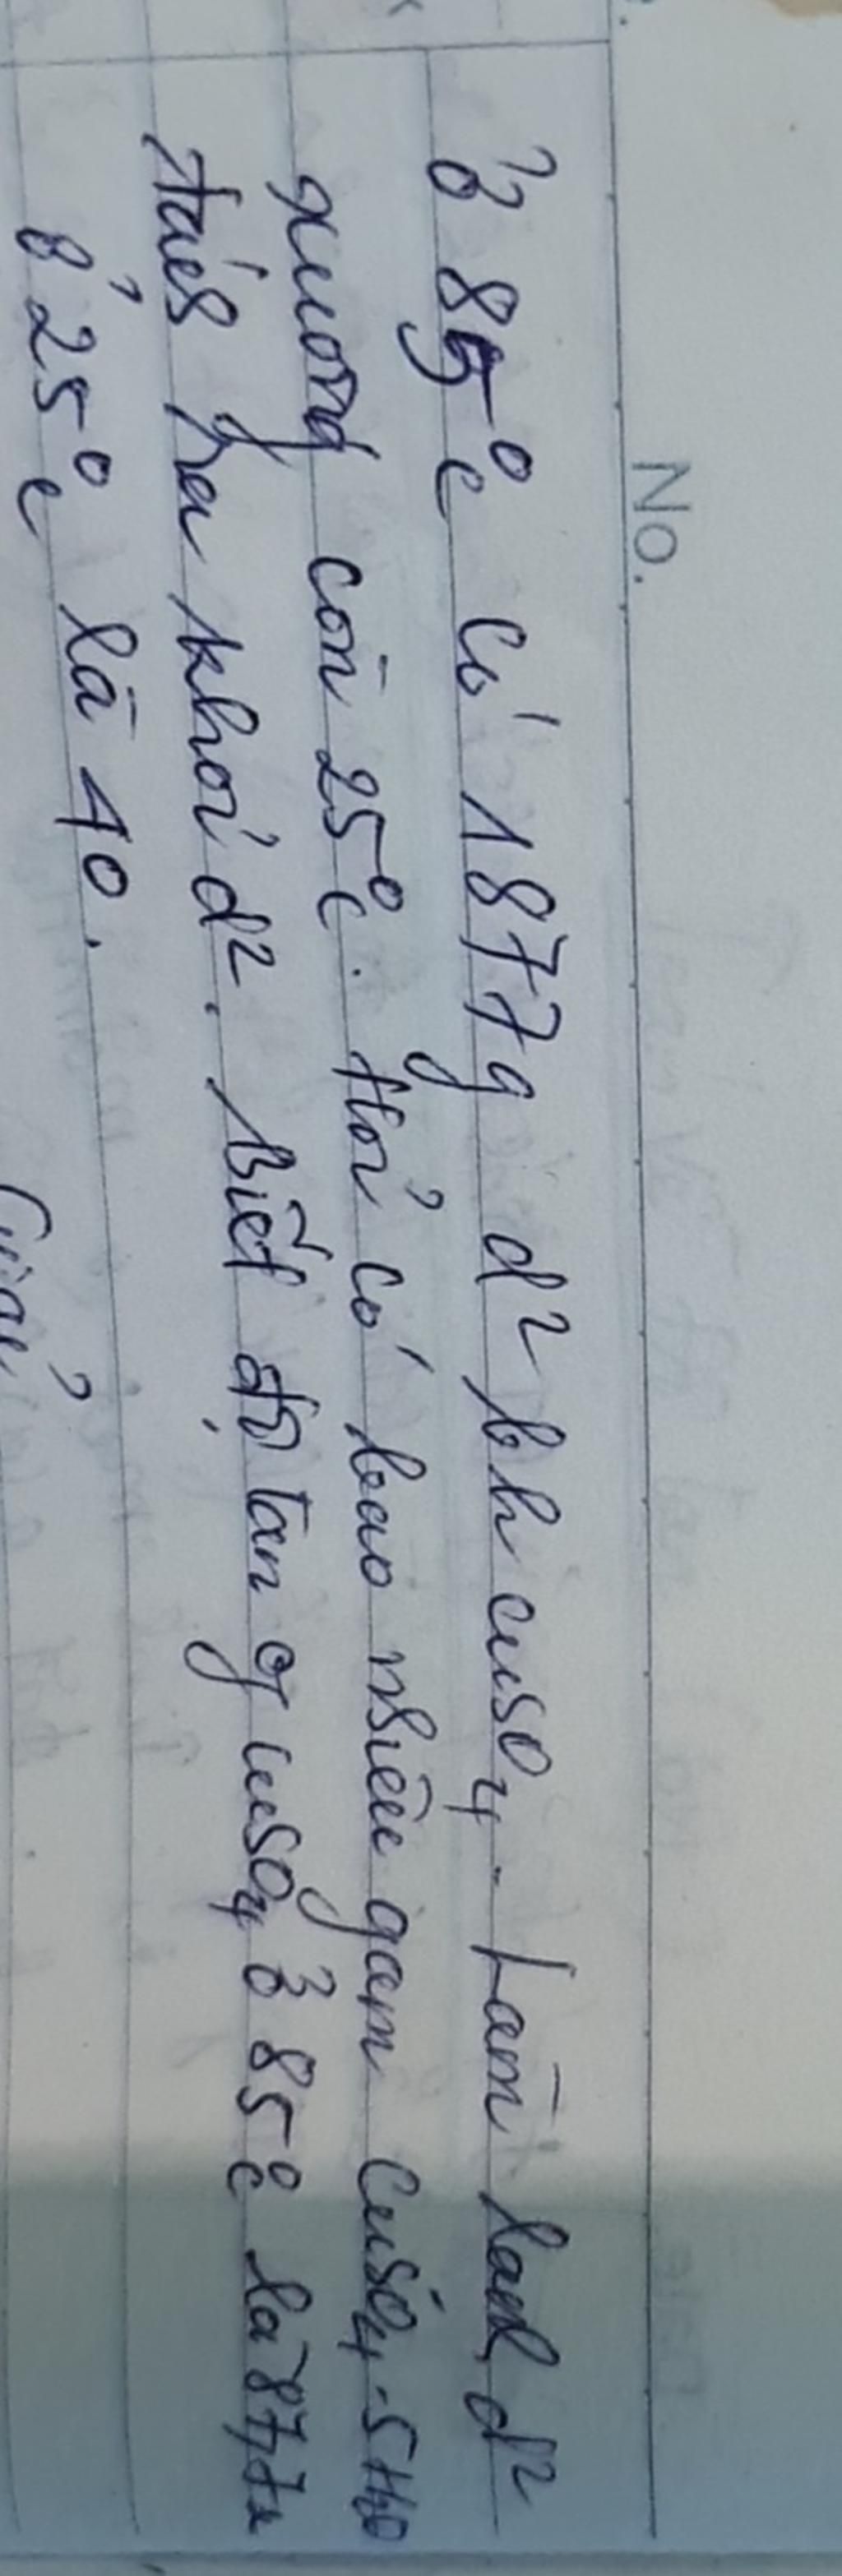 No.
Ở 85⁰c có 1877g d² bh cuSO₄. Làm lạnh d²
xuống còn 25⁰c. Hỏi có bao nhiêu gam CuSO₄.5H₂O
tách ra khỏi d². Biết độ tan of cuSO₄ ở 85⁰c là 87,7
ở 25⁰c là 40.
Giải